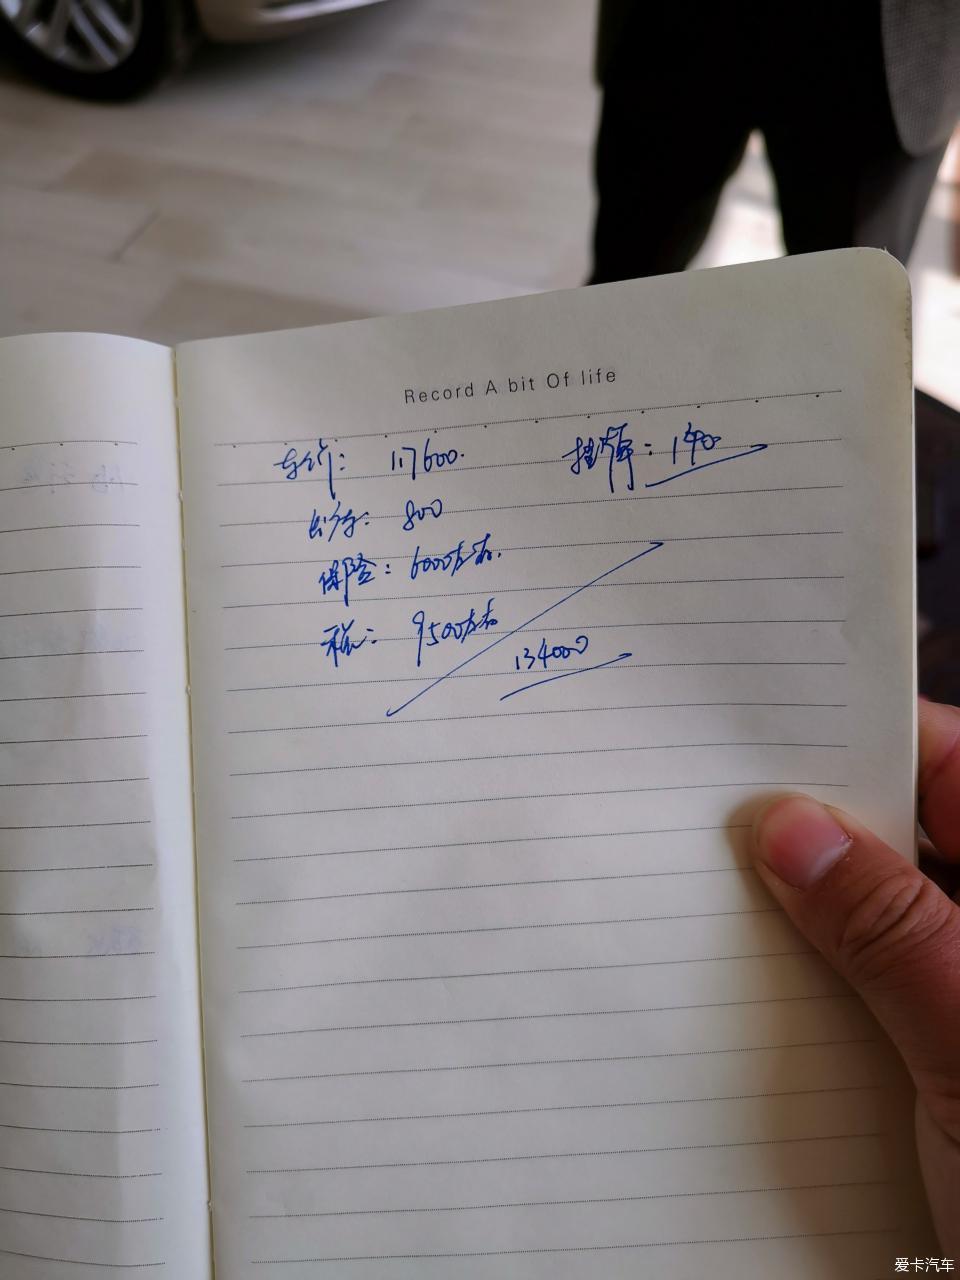 Record A bit Of life
车价: 117600. 挂牌: 140
出库: 800
保险: 6000左右.
税: 9500左右
134000
爱卡汽车